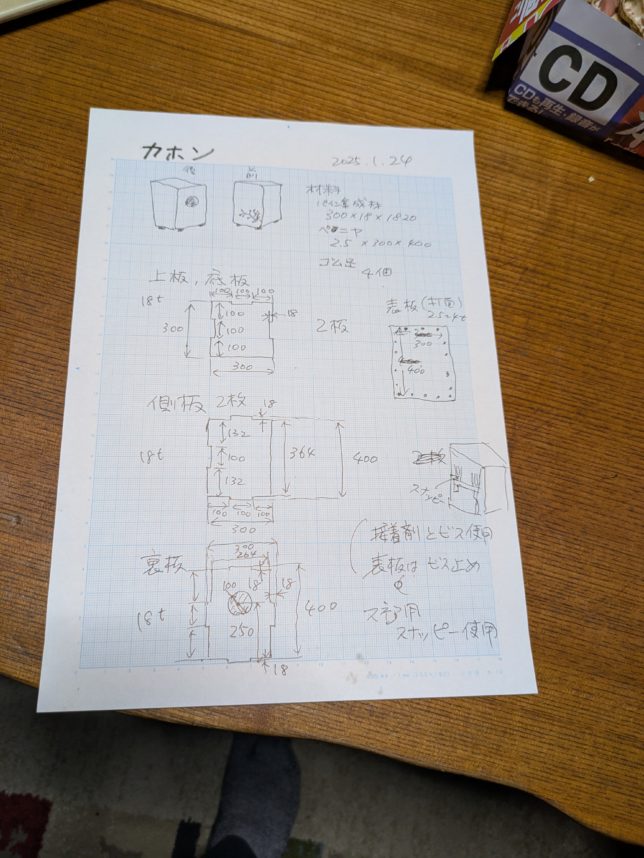 カホン
2025.1.24
後
前
材料
パイン集成材
300×18×1820
ベニヤ
2.5×300×400
ゴム足
4個
上板, 底板
18t
100 100 100
18
300
100
100
100
300
2枚
表板(打面)
2.5t
300
400
側板 2枚
18
18t
132
100
132
364
400
100 100 100
300
スナッピー
裏板
300
264
18t
100
18
18
250
400
18
接着剤とビス使用
表板はビス止め
スネア用
スナッピー使用
CD
CDも再生・録音が
できる!